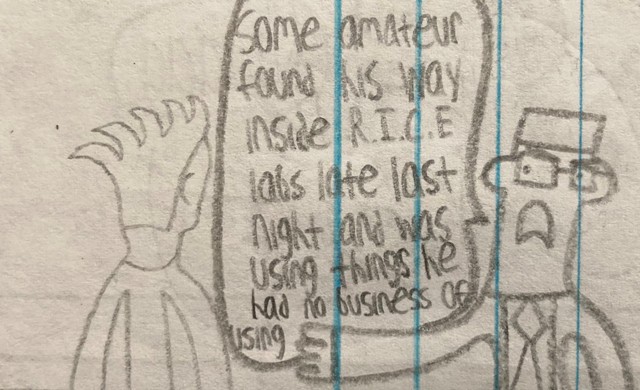 Some amateur
found his way
inside R.I.C.E
labs late last
night and was
using things he
had no business of
using